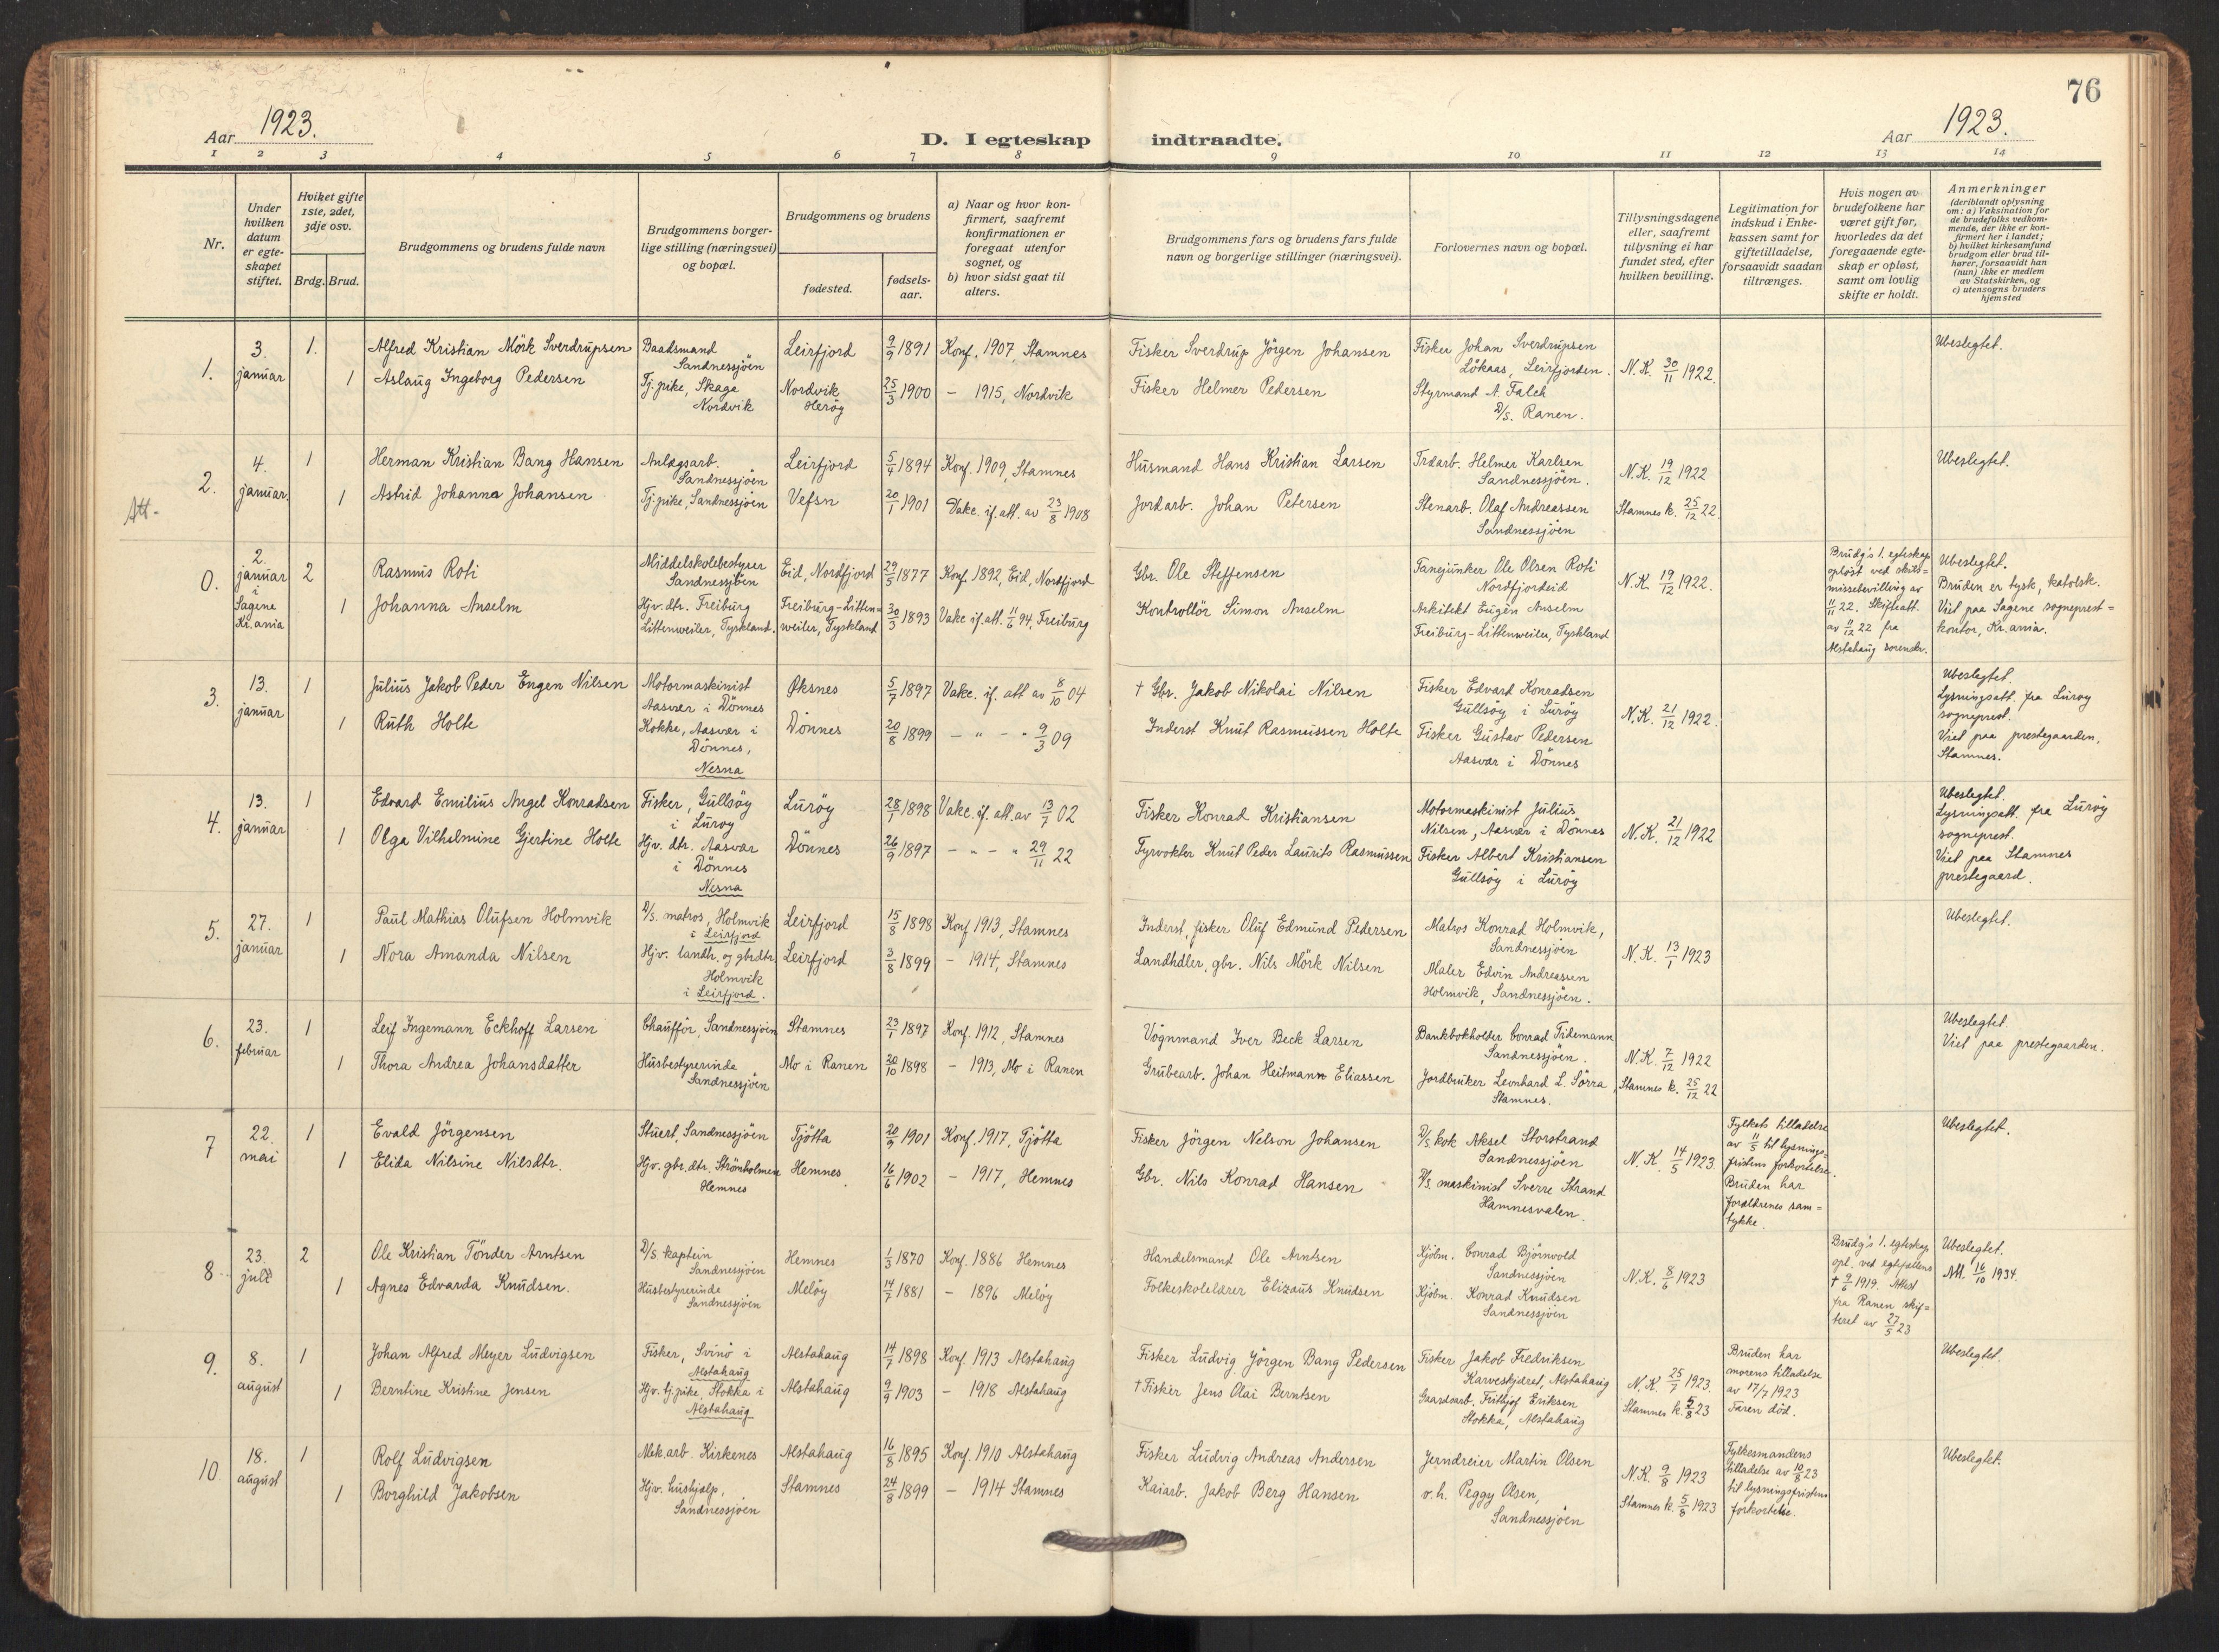 76
Aar 1923.
D. I egteskap indtraadte.
Aar 1923.
1 2 3 4 5 6 7 8 9 10 11 12 13 14
Nr.
Under hvilken datum er egteskapet stiftet.
Hviket gifte 1ste, 2det, 3dje osv.
Brdg. Brud.
Brudgommens og brudens fulde navn
Brudgommens borgerlige stilling (næringsvei) og bopæl.
Brudgommens og brudens
fødested.
fødselsaar.
a) Naar og hvor konfirmert, saafremt konfirmationen er foregaat utenfor sognet, og
b) hvor sidst gaat til alters.
Brudgommens fars og brudens fars fulde navn og borgerlige stillinger (næringsvei).
Forlovernes navn og bopæl.
Tillysningsdagene eller, saafremt tillysning ei har fundet sted, efter hvilken bevilling.
Legitimation for indskud i Enkekassen samt for giftetilladelse, forsaavidt saadan tiltrænges.
Hvis nogen av brudefolkene har været gift før, hvorledes da det foregaaende egteskap er opløst, samt om lovlig skifte er holdt.
Anmerkninger (deriblandt oplysning om: a) Vaksination for de brudefolks vedkommende, der ikke er konfirmert her i landet; b) hvilket kirkesamfund brudgom eller brud tilhører, forsaavidt han (hun) ikke er medlem av Statskirken, og c) utensogns bruders hjemsted
1. 3. januar 1. Alfred Kristian Mörk Sverdrupsen Baadsmand Sandnessjöen Leirfjord 9/9 1891 Konf. 1907, Stamnes Fisker Sverdrup Jörgen Johansen Fisker Johan Sverdrupsen Lökaas, Leirfjorden. N.K. 30/11 1922. Ubeslegtet.
1 Aslaug Ingeborg Pedersen Tj. pike, Skaga Nordvik Nordvik Heröy 25/3 1900 – 1915, Nordvik Fisker Helmer Pedersen Styrmand A. Falch D/S. Ranen.
Att-
2. 4. januar. 1 Herman Kristian Bang Hansen Anlægsarb. Sandnessjöen Leirfjord 5/4 1894 Konf. 1909, Stamnes Husmand Hans Kristian Larsen Træarb. Helmer Karlsen Sandnessjöen. N.K. 19/12 1922 Ubeslegtet.
1 Astrid Johanna Johansen Tj. pike, Sandnessjöen Vefsn 20/1 1901 Vakc. if. att. av 23/8 1908 Jordarb. Johan Petersen Stenarb. Olaf Andreassen Sandnessjöen Stamnes k. 25/12 22.
0. 2. januar i Sagene Kr.ania 2 Rasmus Roti Middelskolebestyrer Sandnessjöen Eid, Nordfjord 29/5 1877 Konf. 1892, Eid, Nordfjord Gbr. Ole Steffensen Fanejunker Ole Olsen Roti Nordfjordeid N.K. 19/12 1922. Brudg's 1. egteskap opløst ved skilsmissebevilling av 11/11 22. Skifteatt. av 11/12 22 fra Alstahaug sorenskr. Ubeslegtet. Bruden er tysk, katolsk. Viet paa Sagene sogneprestkontor, Kr.ania.
1 Johanna Anselm Hjv. dtr. Freiburg Littenweiler, Tyskland. Freiburg-Littenweiler, Tyskland 30/3 1893 Vakc if. att. 11/6 94, Freiburg Kontrollör Simon Anselm Arkitekt Eugen Anselm Freiburg-Littenweiler, Tyskland
3. 13. januar 1 Julius Jakob Peder Engen Nilsen Motormaskinist Aasvær i Dönnes Øksnes 5/7 1897 Vakc. if. att av 8/10 04 † Gbr. Jakob Nikolai Nilsen Fisker Edvard Konradsen Gullsöy i Luröy N.K. 21/12 1922. Ubeslegtet. Lysningsatt. fra Luröy sogneprest. Viet paa prestegaarden, Stamnes.
1 Ruth Holte Kokke, Aasvær i Dönnes, Nesna Dönnes 20/8 1899 – " – " 9/3 09 Inderst Knut Rasmussen Holte Fisker Gustav Pedersen Aasvær i Dönnes
4. 13. januar 1 Edvard Emilius Angel Konradsen Fisker, Gullsöy i Luröy Luröy 28/1 1898 Vakc. if. att. av 13/7 02 Fisker Konrad Kristiansen Motormaskinist Julius Nilsen, Aasvær i Dönnes N.K. 21/12 1922 Ubeslegtet. Lysningsatt. fra Luröy sogneprest. Viet paa Stamnes prestegaard.
1 Olga Vilhelmine Gjertine Holte Hjv. dtr. Aasvær i Dönnes Nesna Dönnes 26/9 1897 – " – " 29/11 22 Fyrvokter Knut Peder Laurits Rasmussen Fisker Albert Kristiansen Gullsöy i Luröy
5. 27. januar 1 Paul Mathias Olufsen Holmvik D/S. matros, Holmvik i Leirfjord Leirfjord 15/8 1898 Konf 1913, Stamnes Inderst, fisker Oluf Edmund Pedersen Matros Konrad Holmvik, Sandnessjöen N.K. 13/1 1923 Ubeslegtet.
1 Nora Amanda Nilsen Hjv. landh. og gbrdtr Holmvik i Leirfjord. Leirfjord 3/8 1899 – 1914, Stamnes Landhdler, gbr. Nils Mörk Nilsen Maler Edvin Andreassen Holmvik, Sandnessjöen.
6. 23. februar 1 Leif Ingemann Eckhoff Larsen Chaufför, Sandnessjöen Stamnes 23/1 1897 Konf. 1912, Stamnes Vognmand Iver Beck Larsen Bankbokholder Conrad Tidemann Sandnessjöen. N.K. 7/12 1922 Ubeslegtet. Viet paa prestegaarden.
1 Thora Andrea Johansdatter Husbestyrerinde Sandnessjöen Mo i Ranen 20/10 1898 – 1913, Mo i Ranen Grubearb. Johan Heitmann Eliassen Jordbruker Leonhard L. Sörra, Stamnes. Stamnes k. 25/12 22
7 22. mai 1 Evald Jörgensen Stuert, Sandnessjöen Tjötta 20/9 1901 Konf. 1917, Tjötta Fisker Jörgen Nelson Johansen D/S kok Aksel Storstrand Sandnessjöen N.K. 14/5 1923. Fylkets tilladelse av 11/5 til lysningsfristens forkortelse. Bruden har forældrenes samtykke. Ubeslegtet.
1 Elida Nilsine Nilsdtr. Hjv. gbr. dtr. Strömholmen Hemnes Hemnes 16/6 1902 – 1917, Hemnes Gbr. Nils Konrad Hansen D/S. maskinist Sverre Strand Hamnesvalen
8. 23. juli 2 Ole Kristian Tönder Arntsen D/S kaptein Sandnessjöen Hemnes 1/3 1870 Konf. 1886 Hemnes Handelsmand Ole Arntsen Kjöbm. Conrad Björnvold Sandnessjöen N.K. 8/6 1923 Brudg's 1. egteskap opl. ved egtefællens † 9/6 1919. Attest fra Ranen skifteret av 27/5 23 Ubeslegtet. Att. 16/10 1934.
1 Agnes Edvarda Knudsen. Husbestyrerinde Sandnessjöen Melöy 14/7 1881 – 1896 Melöy Folkeskolelærer Elizæus Knudsen Kjöbm. Konrad Knudsen Sandnessjöen
9. 8. august 1 Johan Alfred Meyer Ludvigsen Fisker, Svinö i Alstahaug Alstahaug 14/7 1898 Konf. 1913 Alstahaug Fisker Ludvig Jörgen Bang Pedersen Fisker Jakob Fredriksen Karvestjæret, Alstahaug N.K. 25/7 1923. Bruden har morens tilladelse av 17/7 1923 Faren död. Ubeslegtet.
1 Berntine Kristine Jensen Hjv. tj. pike, Stokka i Alstahaug Alstahaug 9/9 1903 – 1918 Alstahaug † Fisker Jens Olai Berntsen Gaardsarb. Frithjof Eriksen Stokka, Alstahaug Stamnes k. 5/8 23
10 18. august 1 Rolf Ludvigsen Mek. arb. Kirkenes Alstahaug 16/8 1895 Konf. 1910 Alstahaug Fisker Ludvig Andreas Andersen Jerndreier Martin Olsen N.K. 9/8 1923 Fylkesmandens tilladelse av 10/8 23 til lysningsfristens forkortelse. Ubeslegtet.
1 Borghild Jakobsen Hjv. hushjælp, Sandnessjöen Stamnes 24/8 1899 – 1914 Stamnes Kaiarb. Jakob Berg Hansen v. h. Peggy Olsen, Sandnessjöen Stamnes k. 5/8 1923